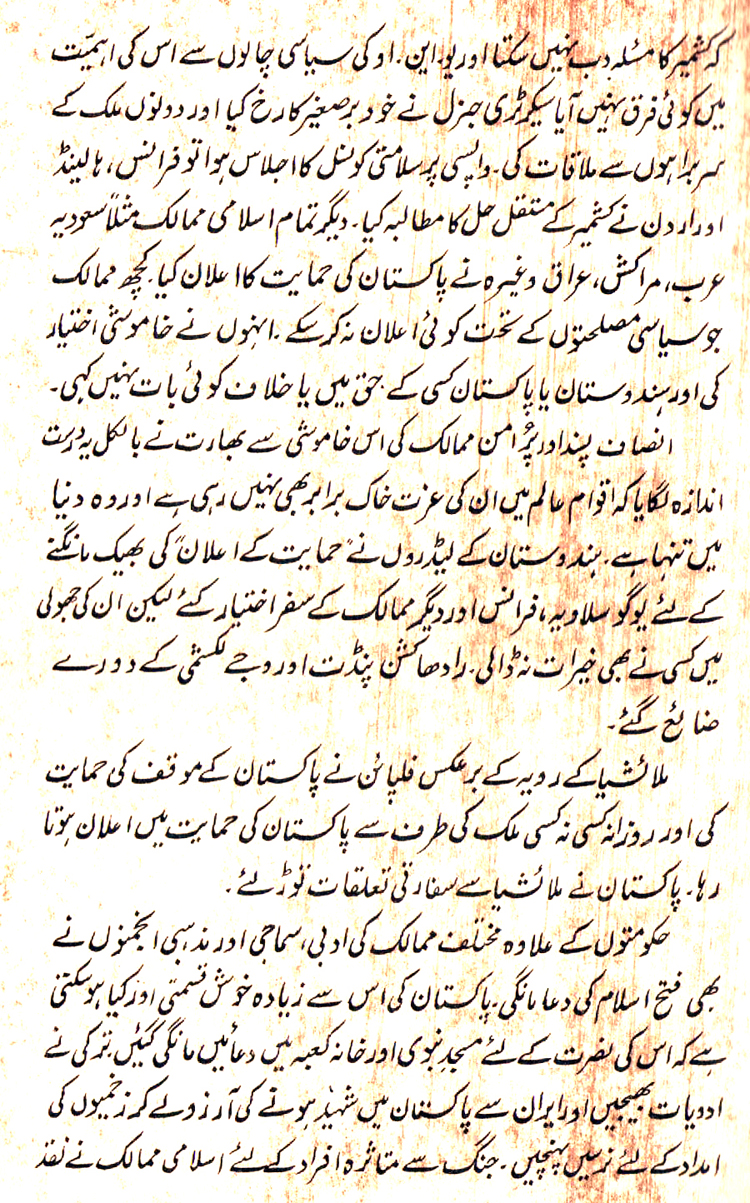 کہ کشمیر کا مسئلہ دب نہیں سکتا اور یو. این. او کی سیاسی چالوں سے اس کی اہمیّت
میں کوئی فرق نہیں آیا سیکرٹری جنرل نے خود برصغیر کا رخ کیا اور دونوں ملک کے
سربراہوں سے ملاقات کی۔ واپسی پر سلامتی کونسل کا اجلاس ہوا تو فرانس، ہالینڈ
اور اردن نے کشمیر کے مستقل حل کا مطالبہ کیا۔ دیگر تمام اسلامی ممالک مثلاً سعودیہ
عرب، مراکش، عراق وغیرہ نے پاکستان کی حمایت کا اعلان کیا۔ کچھ ممالک
جو سیاسی مصلحتوں کے تحت کوئی اعلان نہ کر سکے۔ انہوں نے خاموشی اختیار
کی اور ہندوستان یا پاکستان کسی کے حق میں یا خلاف کوئی بات نہیں کہی۔
انصاف پسند اور پُر امن ممالک کی اس خاموشی سے بھارت نے بالکل یہ درست
اندازہ لگایا کہ اقوام عالم میں ان کی عزت خاک برابر بھی نہیں رہی ہے اور وہ دنیا
میں تنہا ہے۔ ہندوستان کے لیڈروں نے "حمایت کے اعلان" کی بھیک مانگنے
کے لئے یوگوسلاویہ، فرانس اور دیگر ممالک کے سفر اختیار کئے لیکن ان کی جھولی
میں کسی نے بھی خیرات نہ ڈالی۔ رادھا کشن پنڈت اور وجے لکشمی کے دورے
ضائع گئے۔
ملائشیا کے رویہ کے برعکس فلپائن نے پاکستان کے موقف کی حمایت
کی اور روزانہ کسی نہ کسی ملک کی طرف سے پاکستان کی حمایت میں اعلان ہوتا
رہا۔ پاکستان نے ملائشیا سے سفارتی تعلقات توڑ لئے۔
حکومتوں کے علاوہ مختلف ممالک کی ادبی، سماجی اور مذہبی انجمنوں نے
بھی فتح اسلام کی دعا مانگی۔ پاکستان کی اس سے زیادہ خوش قسمتی اور کیا ہو سکتی
ہے کہ اس کی نصرت کے لئے مسجدِ نبوی اور خانہ کعبہ میں دعائیں مانگی گئیں۔ ترکی نے
ادویات بھیجیں اور ایران سے پاکستان میں شہید ہونے کی آرزو لے کر زخمیوں کی
امداد کے لئے نرسیں پہنچیں۔ جنگ سے متاثرہ افراد کے لئے اسلامی ممالک نے نقد